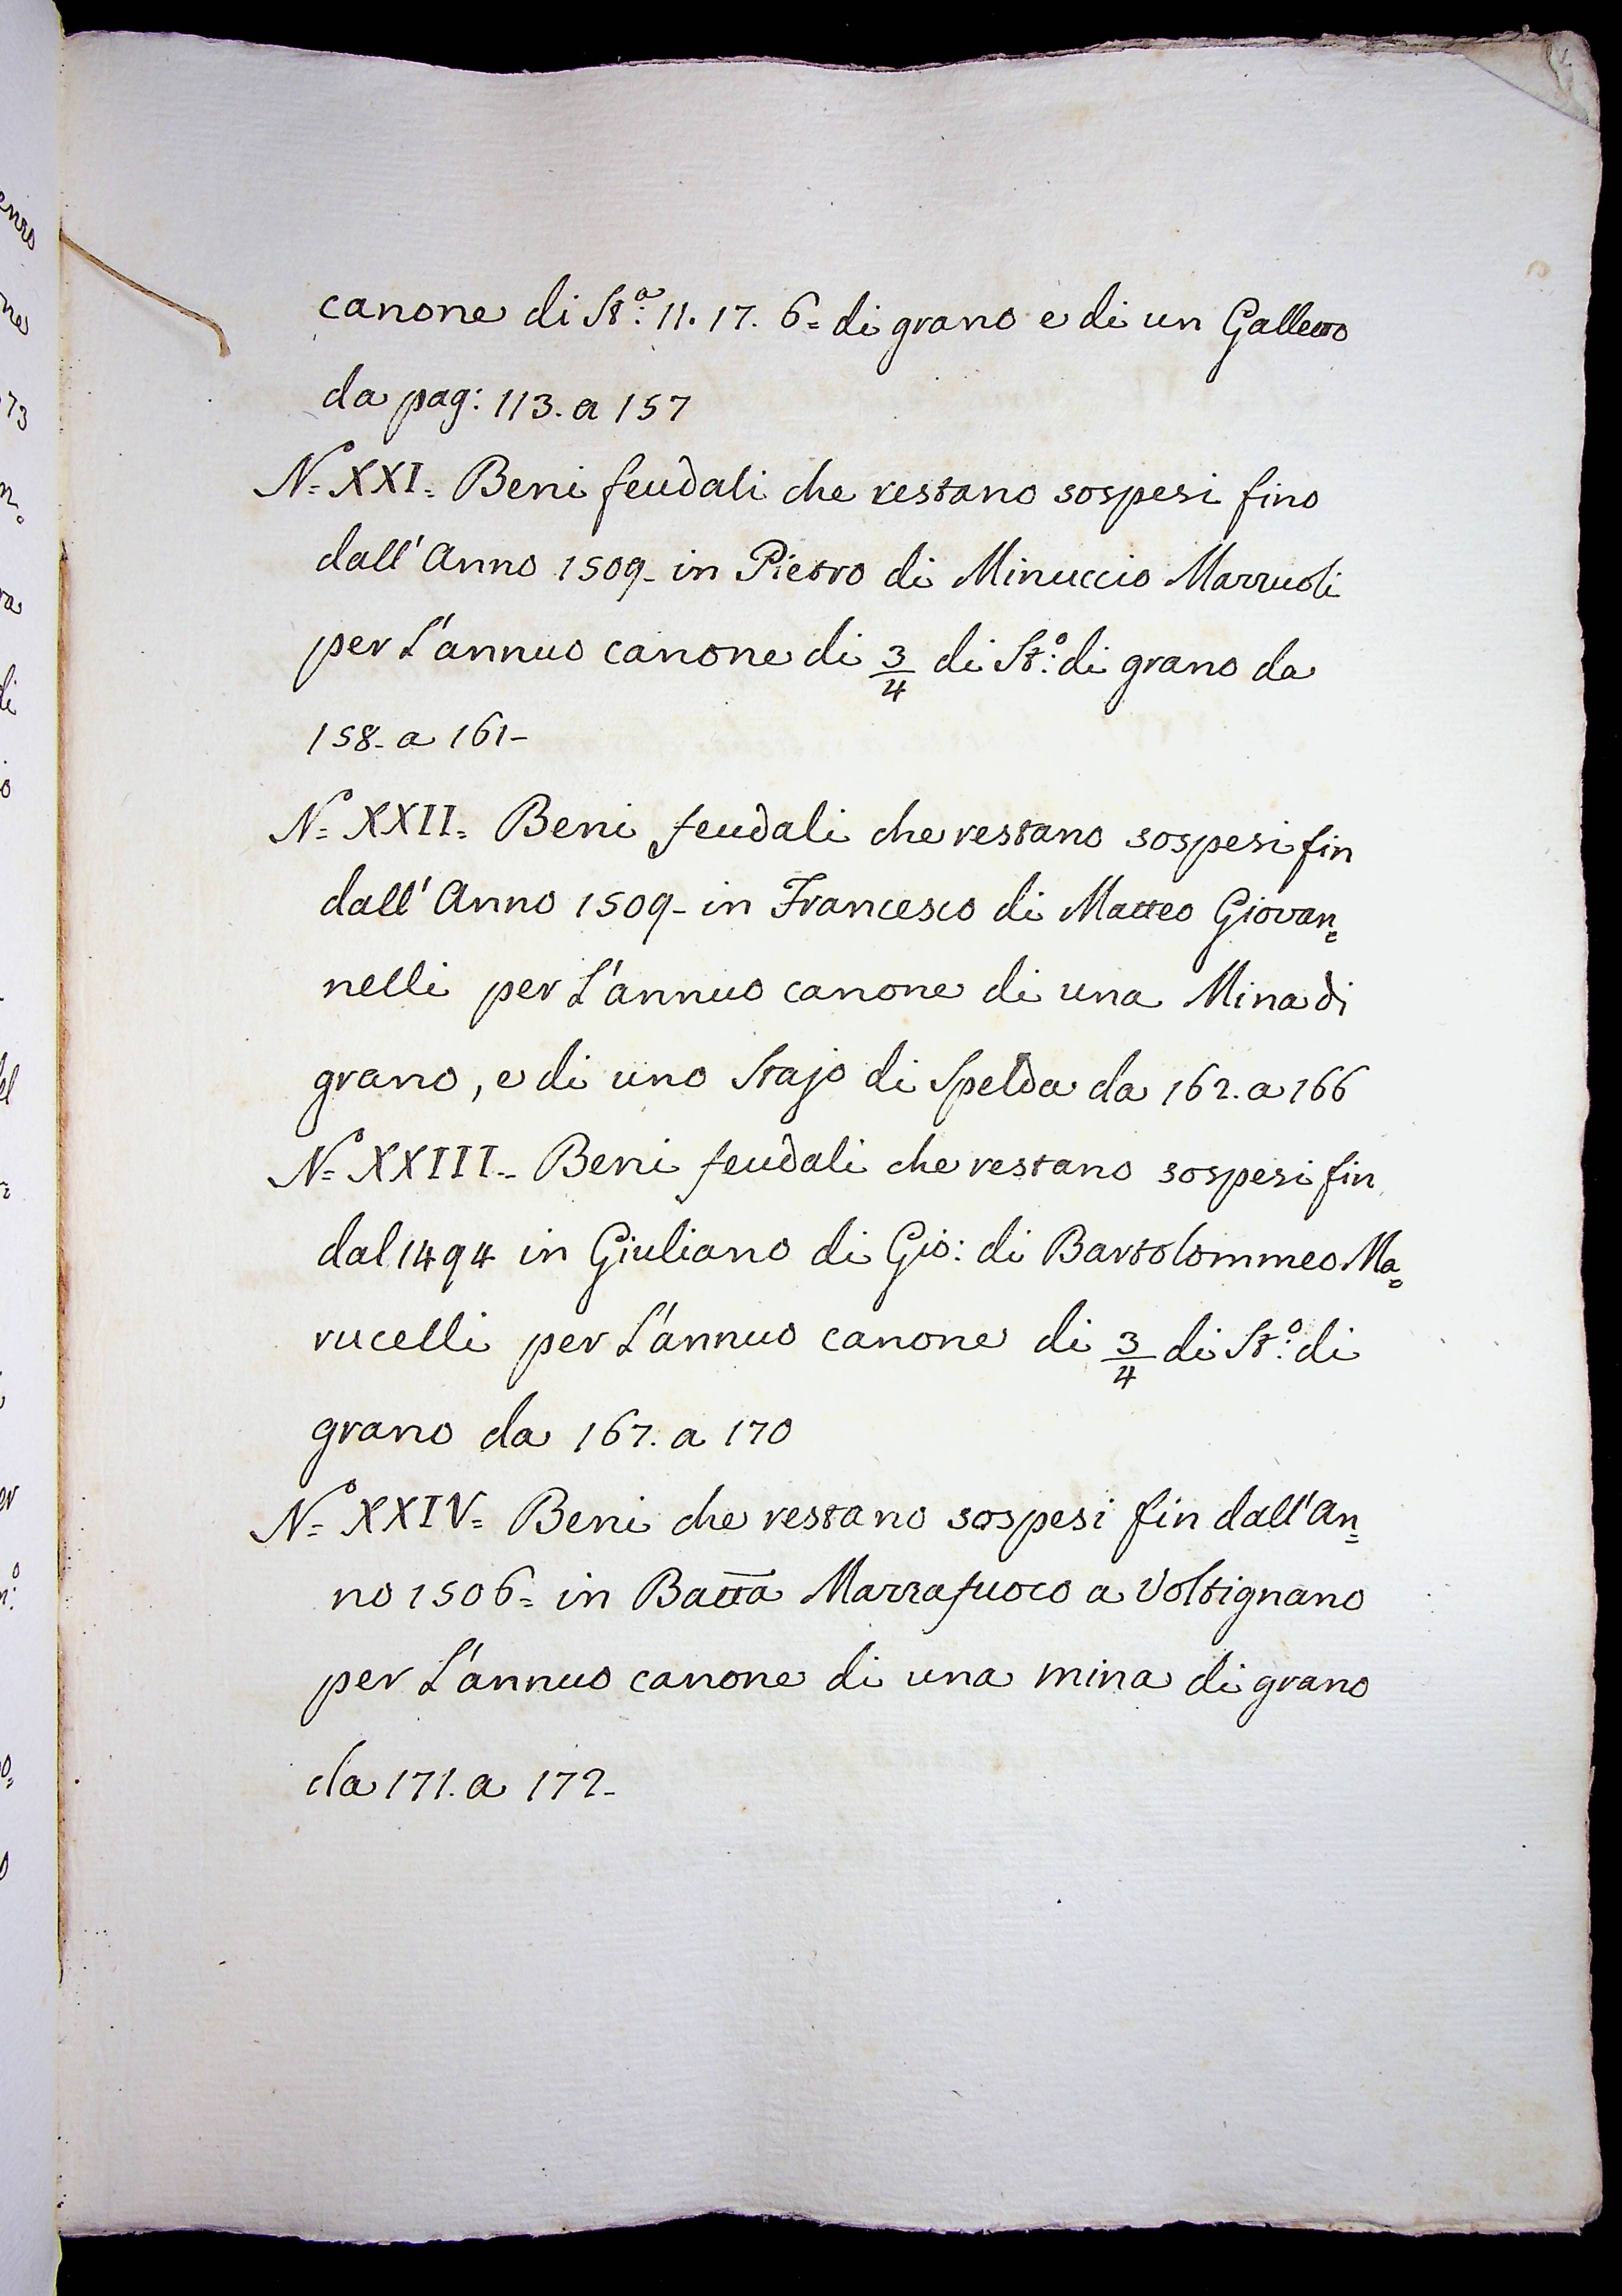 canone di St.ª 11. 17. 6= di grano e di un Galletto
da pag: 113. a 157
N.º XXI= Beni feudali che restano sospesi fino
dall'Anno 1509- in Pietro di Minuccio Mazzuoli
per L'annuo canone di 3/4 di St.º di grano da
158- a 161-
N.º XXII= Beni feudali che restano sospesi fin
dall'Anno 1509- in Francesco di Matteo Giovan=
nelli per L'annuo canone di una Mina di
grano, e di uno Stajo di Spelda da 162. a 166
N.º XXIII- Beni feudali che restano sospesi fin
dal 1494 in Giuliano di Gio: di Bartolommeo Ma=
rucelli per L'annuo canone di 3/4 di St.º di
grano da 167. a 170
N.º XXIV= Beni che restano sospesi fin dall'An=
no 1506= in Batta Mazzafuoco a Voltignano
per L'annuo canone di una mina di grano
da 171. a 172-